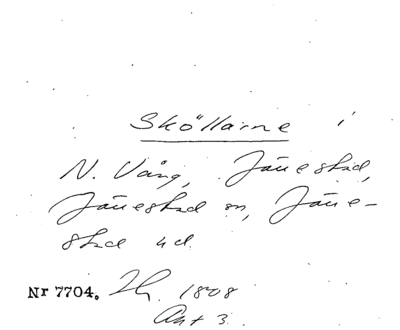 Sköllarne i
N. Vång, Järestad,
Järestad sn, Järe-
stad hd.
Nr 7704. 1808
Ant 3.